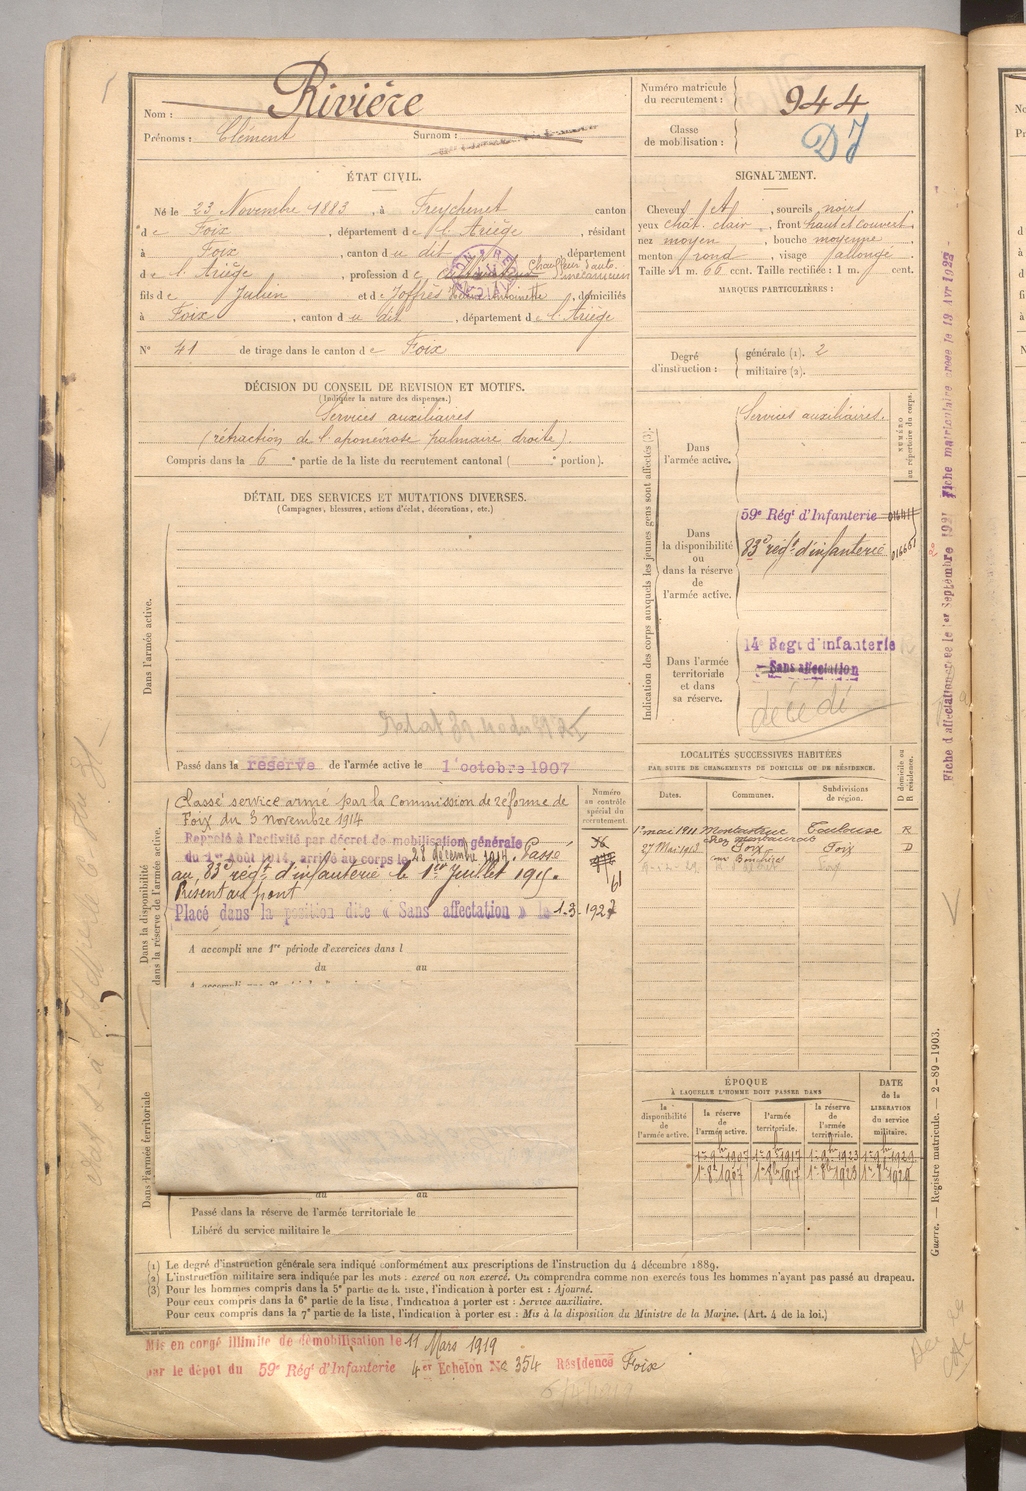 Rivière
Nom :
Prénoms : Clément Surnom :
Numéro matricule du recrutement : 944
Classe de mobilisation :
DJ
ÉTAT CIVIL.
Né le 23 Novembre 1883, à Freychenet canton
de Foix, département de l'Ariège, résidant
à Foix, canton du dit département
de l'Ariège, profession de Chauffeur d'auto. mécanicien
fils de Julien et de Joffrès Antoinette, domiciliés
à Foix, canton du dit, département de l'Ariège
N° 41 de tirage dans le canton de Foix
SIGNALEMENT.
Cheveux, sourcils noirs
yeux chât. clair, front haut et couvert,
nez moyen, bouche moyenne,
menton rond, visage allongé.
Taille : 1 m. 66 cent. Taille rectifiée : 1 m. cent.
MARQUES PARTICULIÈRES :
Degré d'instruction : générale (1). 2
militaire (2).
DÉCISION DU CONSEIL DE REVISION ET MOTIFS.
(Indiquer la nature des dispenses.)
Services auxiliaires
(rétraction de l'aponévrose palmaire droite).
Compris dans la 6e partie de la liste du recrutement cantonal ( e portion).
DÉTAIL DES SERVICES ET MUTATIONS DIVERSES.
(Campagnes, blessures, actions d'éclat, décorations, etc.)
Dans l'armée active.
Passé dans la réserve de l'armée active le 1 octobre 1907
Indication des corps auxquels les jeunes gens sont affectés (3).
NUMÉRO au répertoire du corps.
Dans l'armée active.
Services auxiliaires.
Dans la disponibilité ou dans la réserve de l'armée active.
59e Régt d'Infanterie
83e régt d'infanterie
Dans l'armée territoriale et dans sa réserve.
14e Regt d'infanterie
Sans affectation
décédé
Fiche d'affectation créée le 1er Septembre 1921 Fiche matriculaire créée le 13 Avr 1923
Dans la disponibilité
dans la réserve de l'armée active.
Numéro au contrôle spécial du recrutement.
Classé service armé par la Commission de réforme de
Foix du 3 novembre 1914
Rappelé à l'activité par décret de mobilisation générale
du 1er Août 1914, arrivé au corps le 28 décembre 1914. Passé
au 83e régt d'infanterie le 1er Juillet 1915.
Présent au front
Placé dans la position dite « Sans affectation » le 1-3-1927
61
A accompli une 1re période d'exercices dans l
du au
LOCALITÉS SUCCESSIVES HABITÉES
PAR SUITE DE CHANGEMENTS DE DOMICILE OU DE RÉSIDENCE.
Dates. Communes. Subdivisions de région. D domicile ou R résidence.
1er mai 1911 Toulouse R
27 Mai 1913 Foix Foix D
Dans l'armée territoriale
du au
Passé dans la réserve de l'armée territoriale le
Libéré du service militaire le
ÉPOQUE
À LAQUELLE L'HOMME DOIT PASSER DANS
DATE de la LIBÉRATION du service militaire.
la disponibilité de l'armée active.
la réserve de l'armée active.
l'armée territoriale.
la réserve de l'armée territoriale.
Guerre. — Registre matricule. — 2-89-1903.
(1) Le degré d'instruction générale sera indiqué conformément aux prescriptions de l'instruction du 4 décembre 1889.
(2) L'instruction militaire sera indiquée par les mots : exercé ou non exercé. On comprendra comme non exercés tous les hommes n'ayant pas passé au drapeau.
(3) Pour les hommes compris dans la 5e partie de la liste, l'indication à porter est : Ajourné.
Pour ceux compris dans la 6e partie de la liste, l'indication à porter est : Service auxiliaire.
Pour ceux compris dans la 7e partie de la liste, l'indication à porter est : Mis à la disposition du Ministre de la Marine. (Art. 4 de la loi.)
Mis en congé illimité de démobilisation le 11 Mars 1919
par le dépôt du 59e Régt d'Infanterie 4er Echelon No 354 Résidence Foix